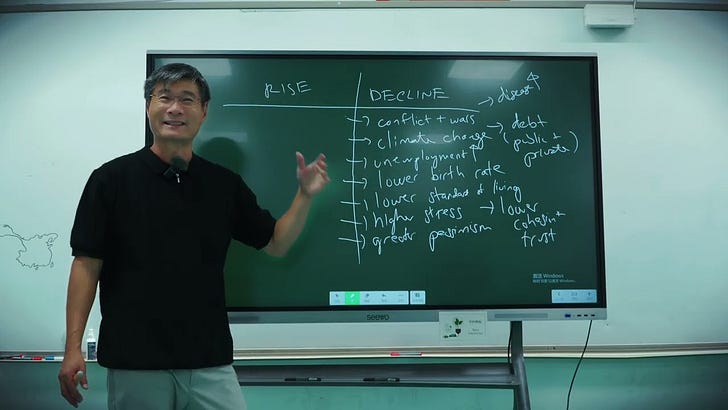 RISE
DECLINE
→ disease ↑
→ conflict + wars
→ climate change → debt
public +
private )
→ unemployment ↑
→ lower birth rate
→ lower standard of living
→ higher stress → lower
cohesion +
trust
→ greater pessimism
激活 Windows
seewo